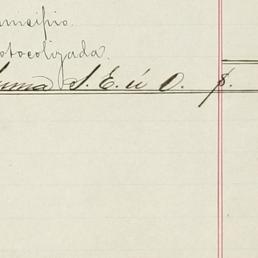 unicipio.
otocolizada.
uma S. E. ú O. $.